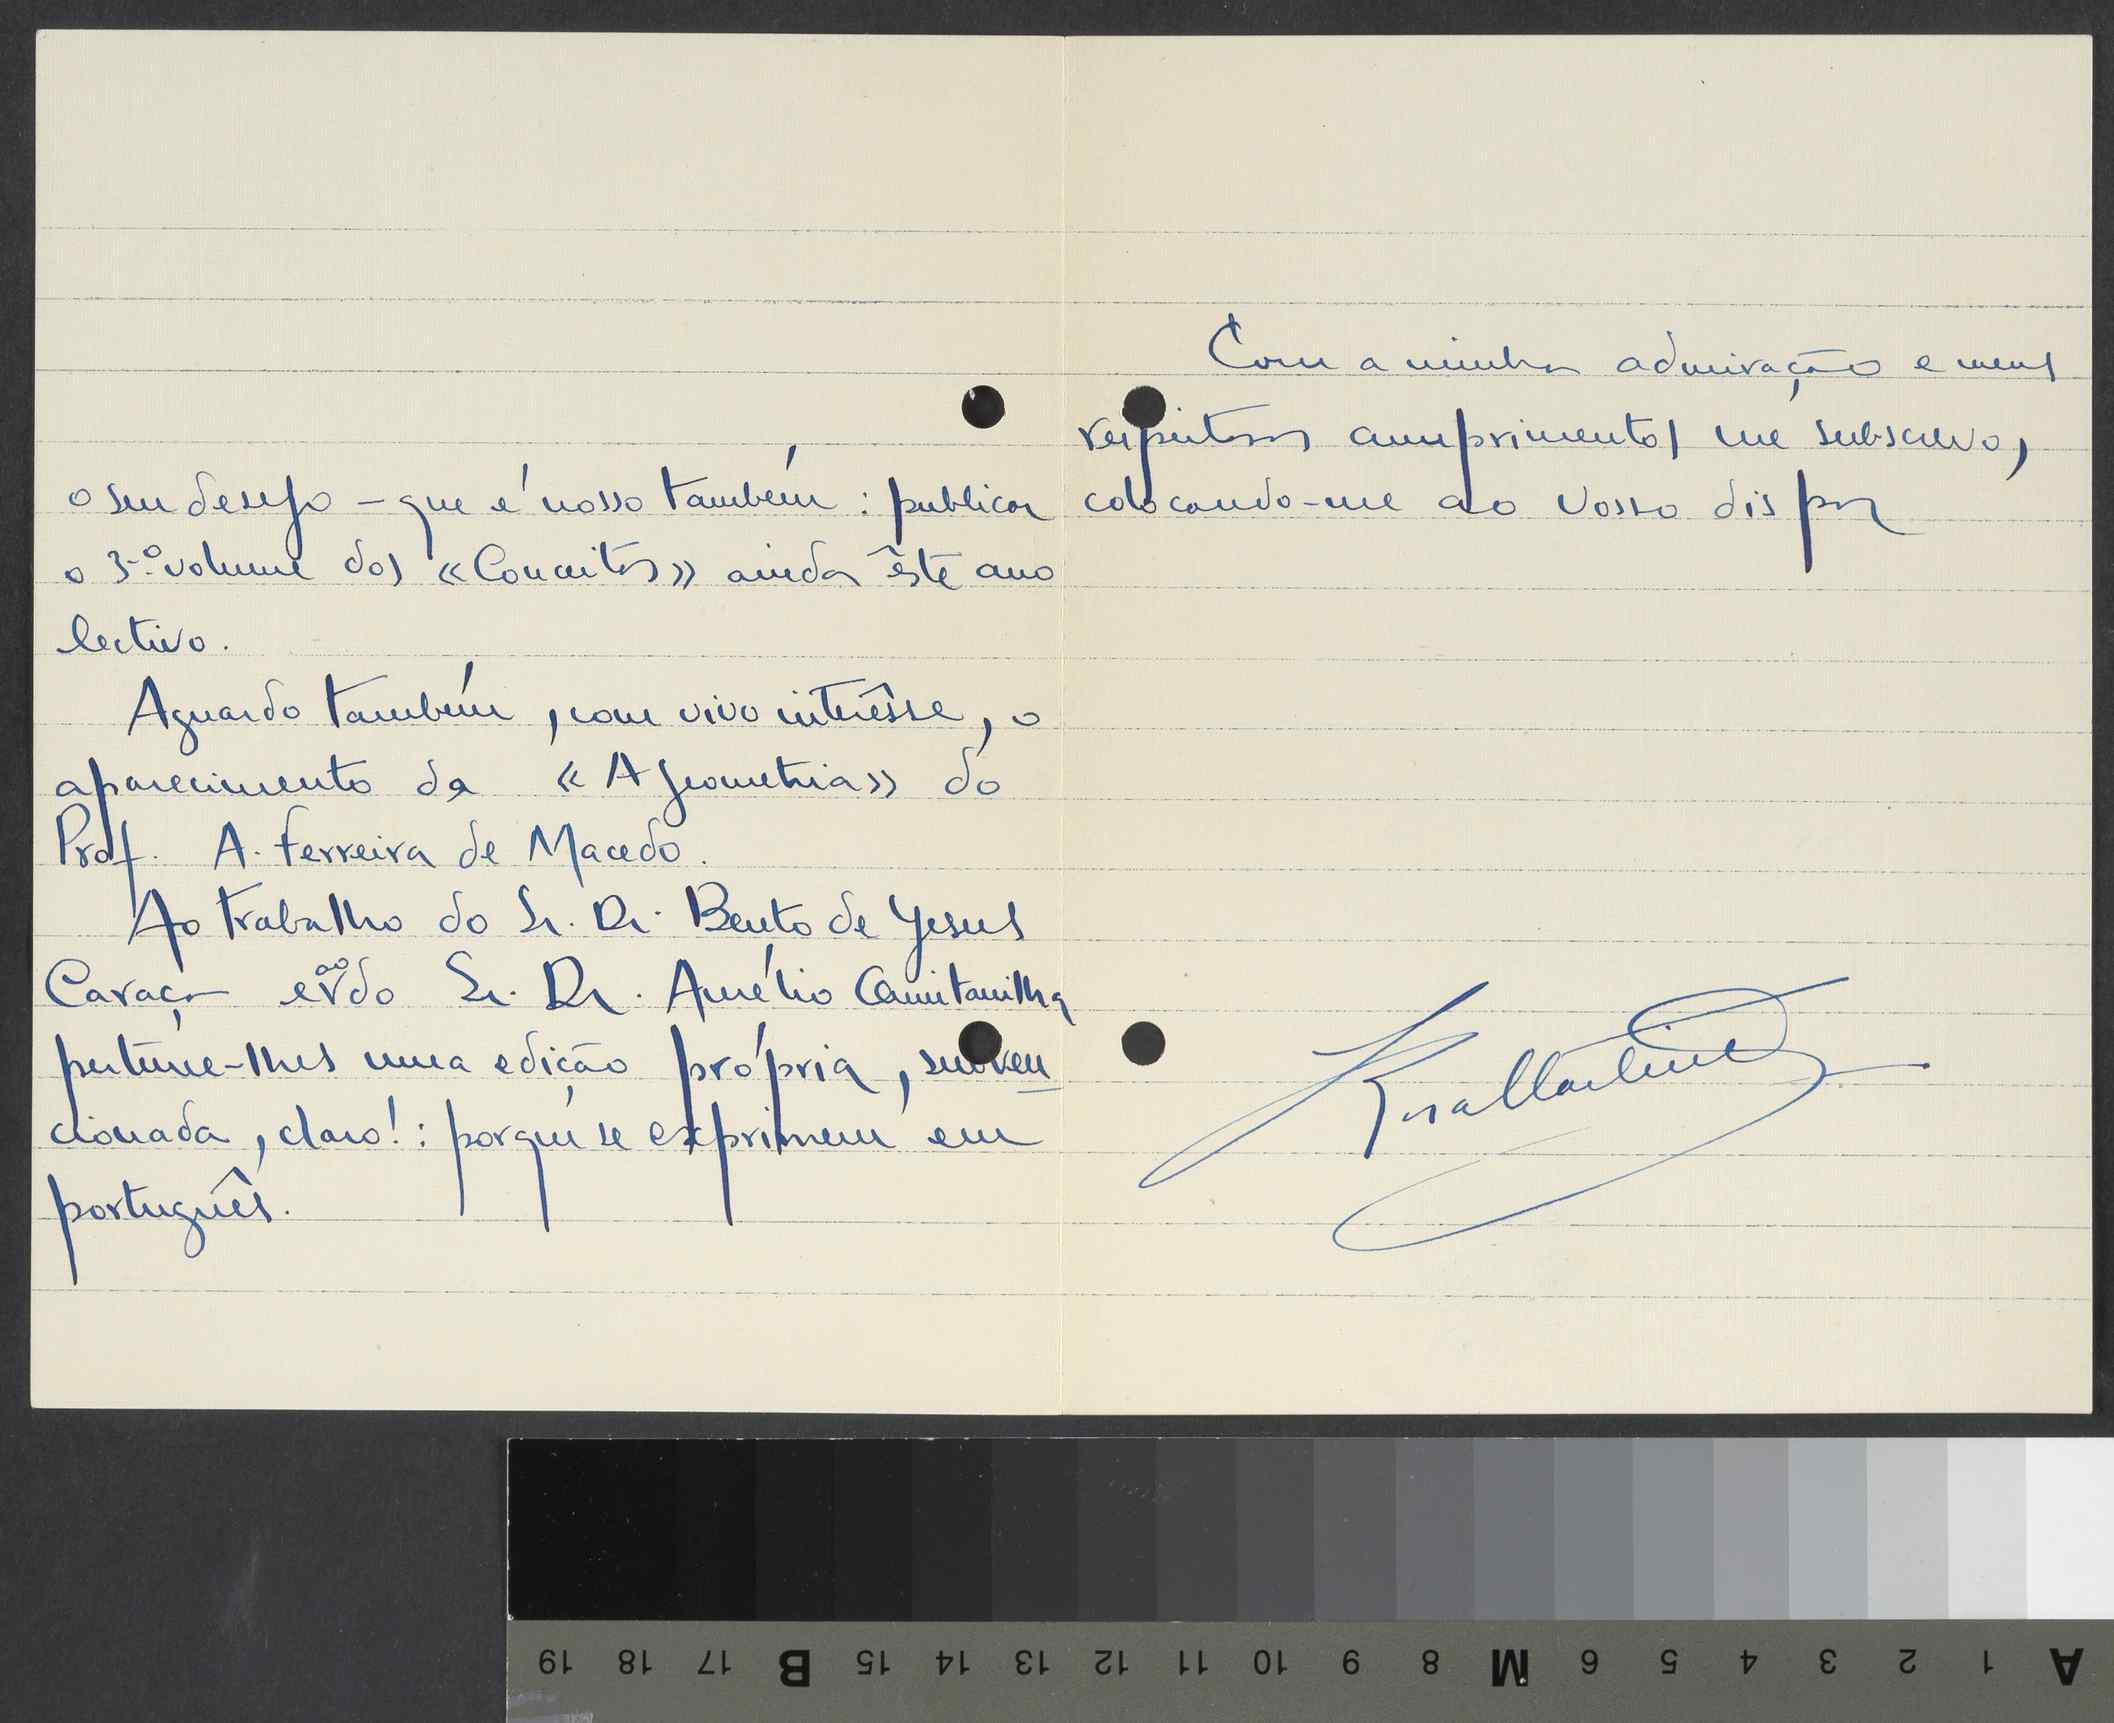 o seu desejo – que é nosso também: publicar
o 3.º volume dos «Conceitos» ainda êste ano
lectivo.
Aguardo também, com vivo interêsse, o
aparecimento da «A Geometria» do
Prof. A. Ferreira de Macedo.
Ao trabalho do Sr. Dr. Bento de Jesus
Caraça e ao do Sr. Dr. Aurélio Quintanilha
pertence-lhes uma edição própria, subven
cionada, claro!: porque se exprimem em
português.
Com a minha admiração e meus
respeitosos cumprimentos me subscrevo,
colocando-me ao vosso dispor
19 18 17 B 15 14 13 12 11 10 9 8 M 6 5 4 3 2 1 A